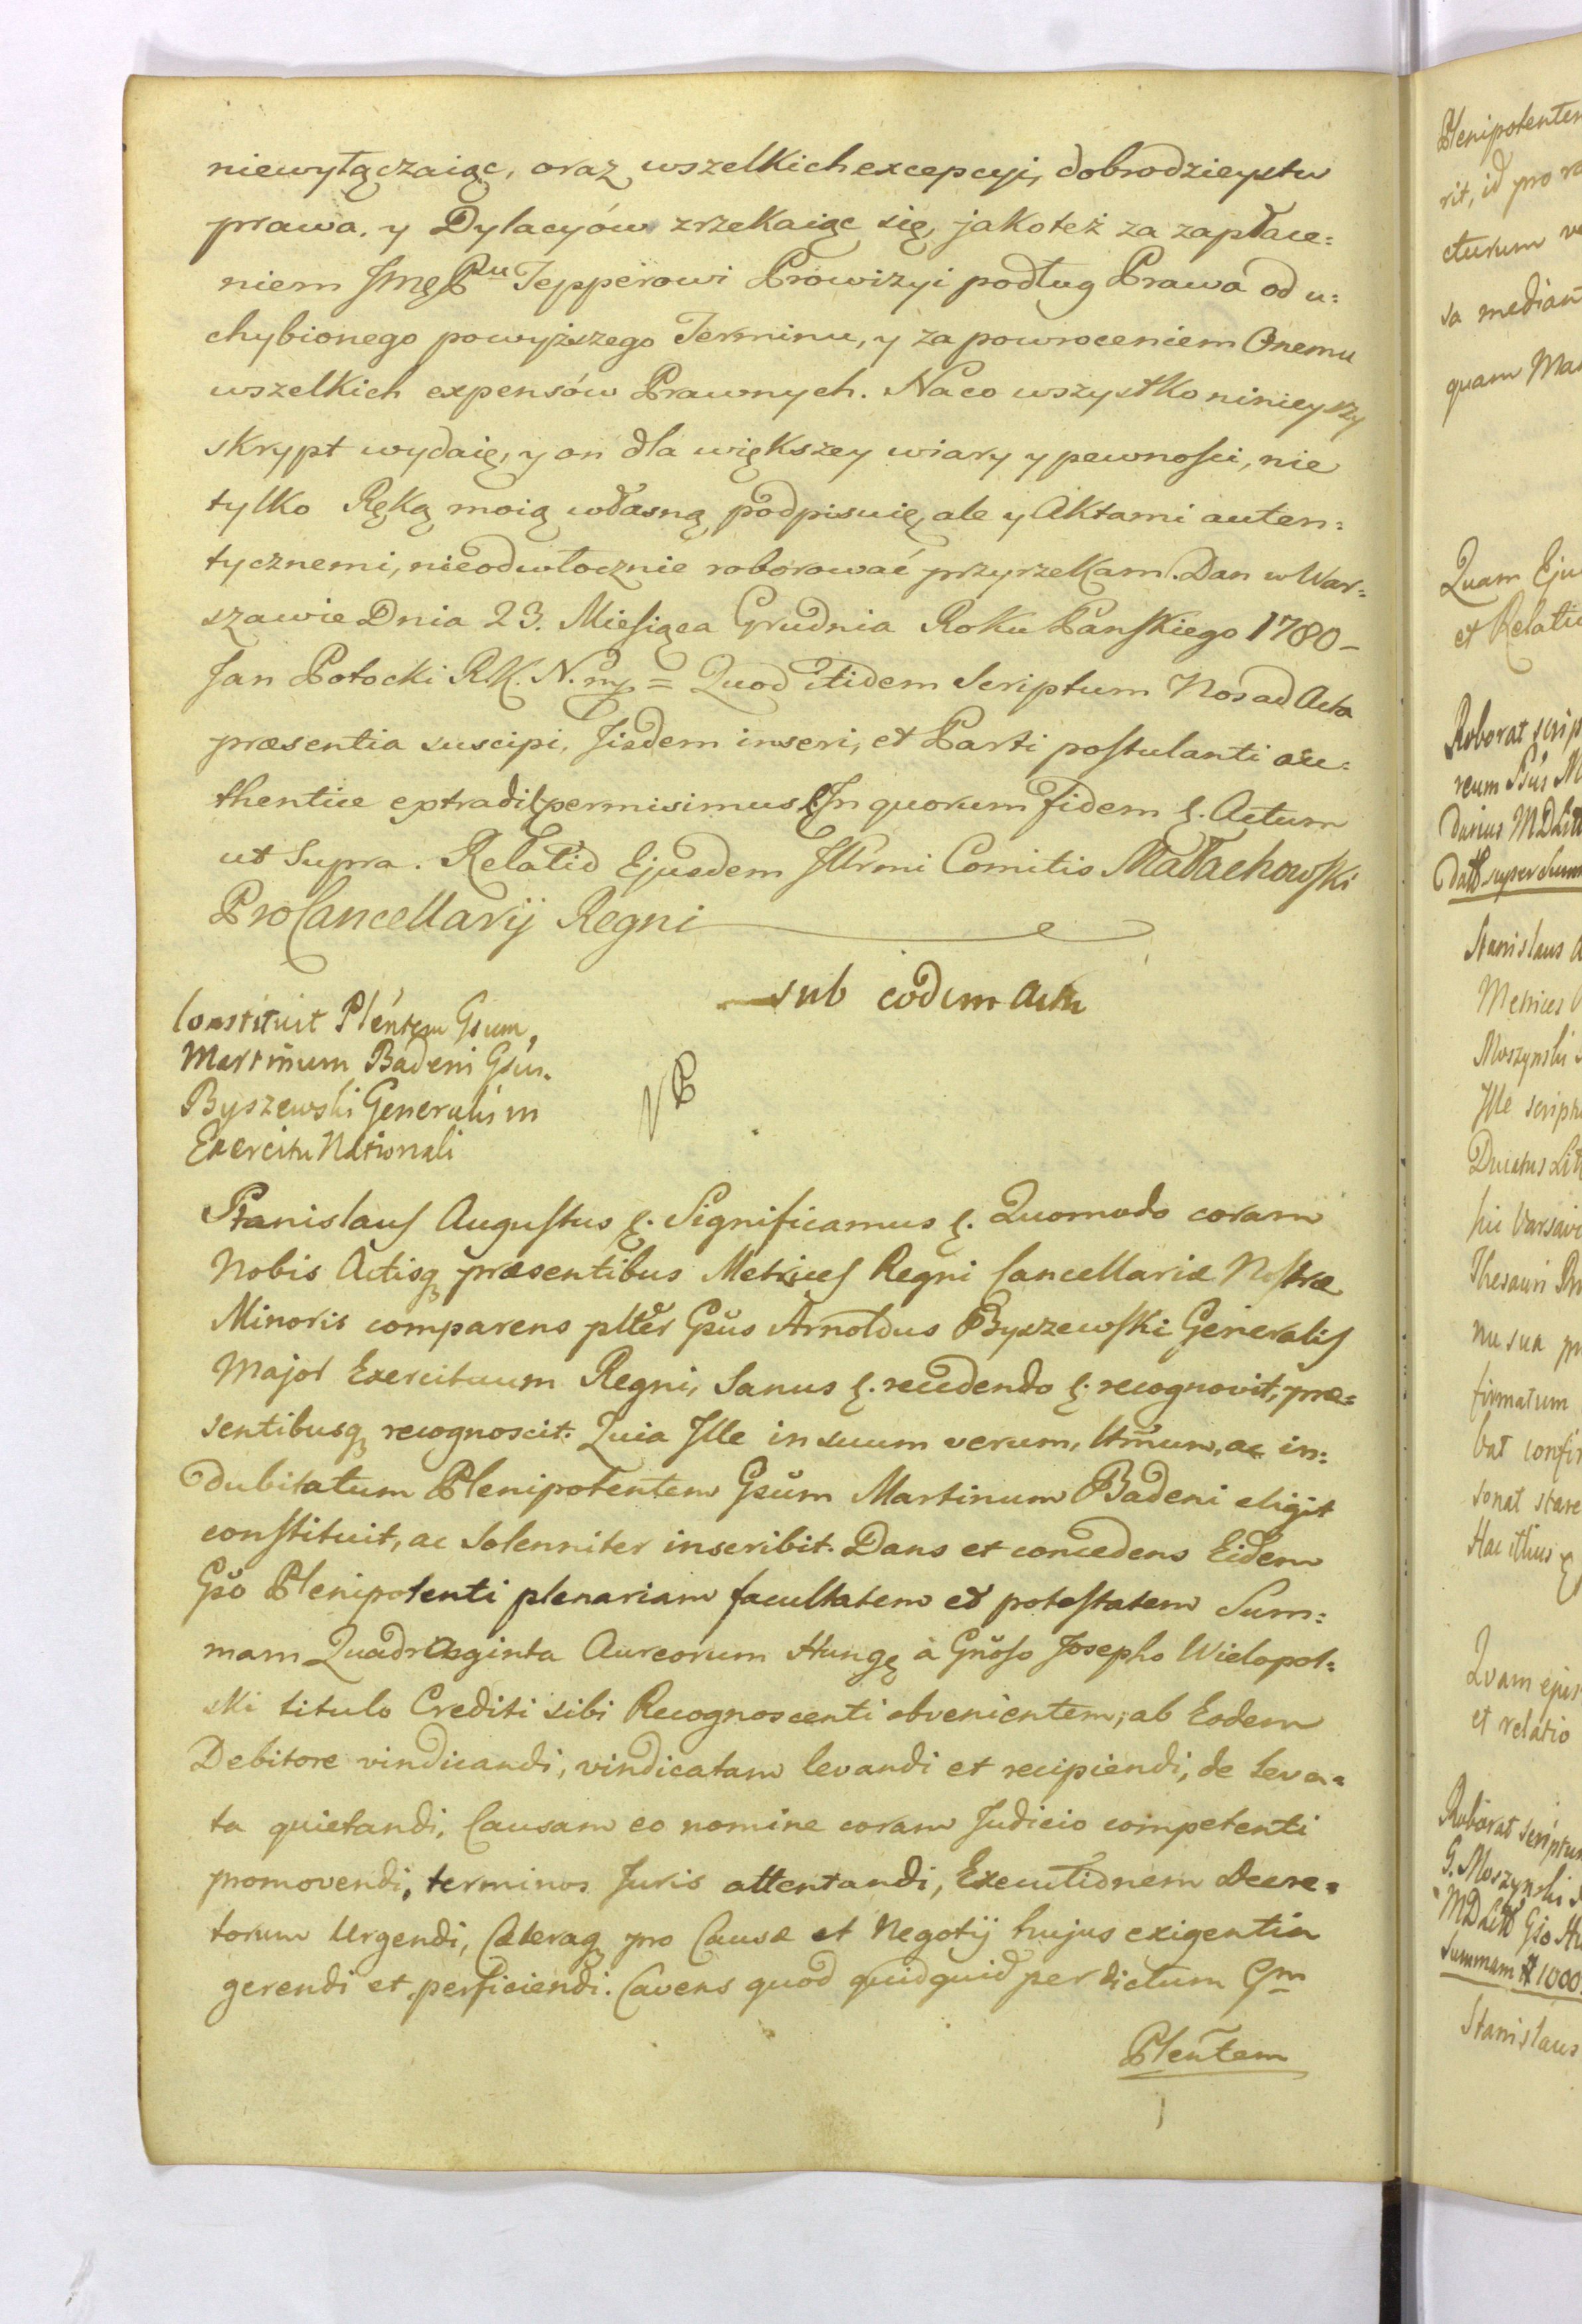 niewyłączaiąc, oraz wszelkich excepcyi, dobrodzieystw
prawa, y Dylacyów zrzekaiąc się, jakoteż za zapłace=
niem Jmę Pu Tepperowi Prowizyi podług Prawa od u=
chybionego powyższego Terminu, y za powroceniem Onemu
wszelkich expensów Prawnych. Na co wszystko ninieyszy
skrypt wydaię, y on dla większey wiary y pewności, nie
tylko Ręką moią własną podpisuię, ale y Aktami auten=
tycznemi, nieodwłocznie roborować przyrzekam. Dan w War=
szawie Dnia 23. Miesiąca Grudnia Roku Panskiego 1780 –
Jan Potocki R.K.N. mp = Quod itidem Scriptum Nos ad Acta
præsentia suscipi, Iisdem inseri, et Parti postulanti au=
thentice extradi permisimus In quorum fidem &. Actum
ut Supra. Relatio Ejusdem Illrmi Comitis Małachowski
ProCancellarij Regni
sub eodem Actu
Constituit Pléntem Gsum,
Martinum Badeni Gsus.
Byszewski Generalis in
Exercitu Nationali
NB
Stanislaus Augustus &. Significamus &. Quomodo coram
Nobis Actisq præsentibus Metrices Regni Cancellariæ Nostræ
Minoris comparens plter Gsus Arnoldus Byszewski Generalis
Major Exercituum Regni, Sanus &. recedendo &. recognovit, præ=
sentibusq recognoscit. Quia Ille in suum verum, ltmum, ac in=
dubitatum Plenipotentem Gsum Martinum Badeni eligit
constituit, ac Solenniter inscribit. Dans et concedens Eidem
Gso Plenipotenti plenariam facultatem et potestatem Sum=
mam Quadraginta Aureorum Hung à Gnoso Josepho Wielopol=
ski titulo Crediti sibi Recognoscenti obvenientem, ab Eodem
Debitore vindicandi, vindicatam levandi et recipiendi, de Leva=
ta quietandi, Causam eo nomine coram Judicio competenti
promovendi, terminos Juris attentandi, Executionem Decre=
torum Urgendi, Cæteraq pro Causæ et Negotij hujus exigentia
gerendi et perficiendi. Cavens quod quidquid per dictum Gm
Plentem
Plenipotenten
rit, id pro ra
cturum
sa median
quam
Quam Eju
et Relatio
Roborat scrip
reum
darius MDLitt
Datt super Sum
Stanislaus A
Metrices
Moszynski
Ille scriptu
Ducatus Lit
hic Varsavi
Thesauri
nu sua
firmatum
bat confir
sonat stare
Hac ithus
Quam ejus
et relatio
Roborat scriptum
G. Moszynski
MDLitt Gso
Summam # 1000.
Stanislaus